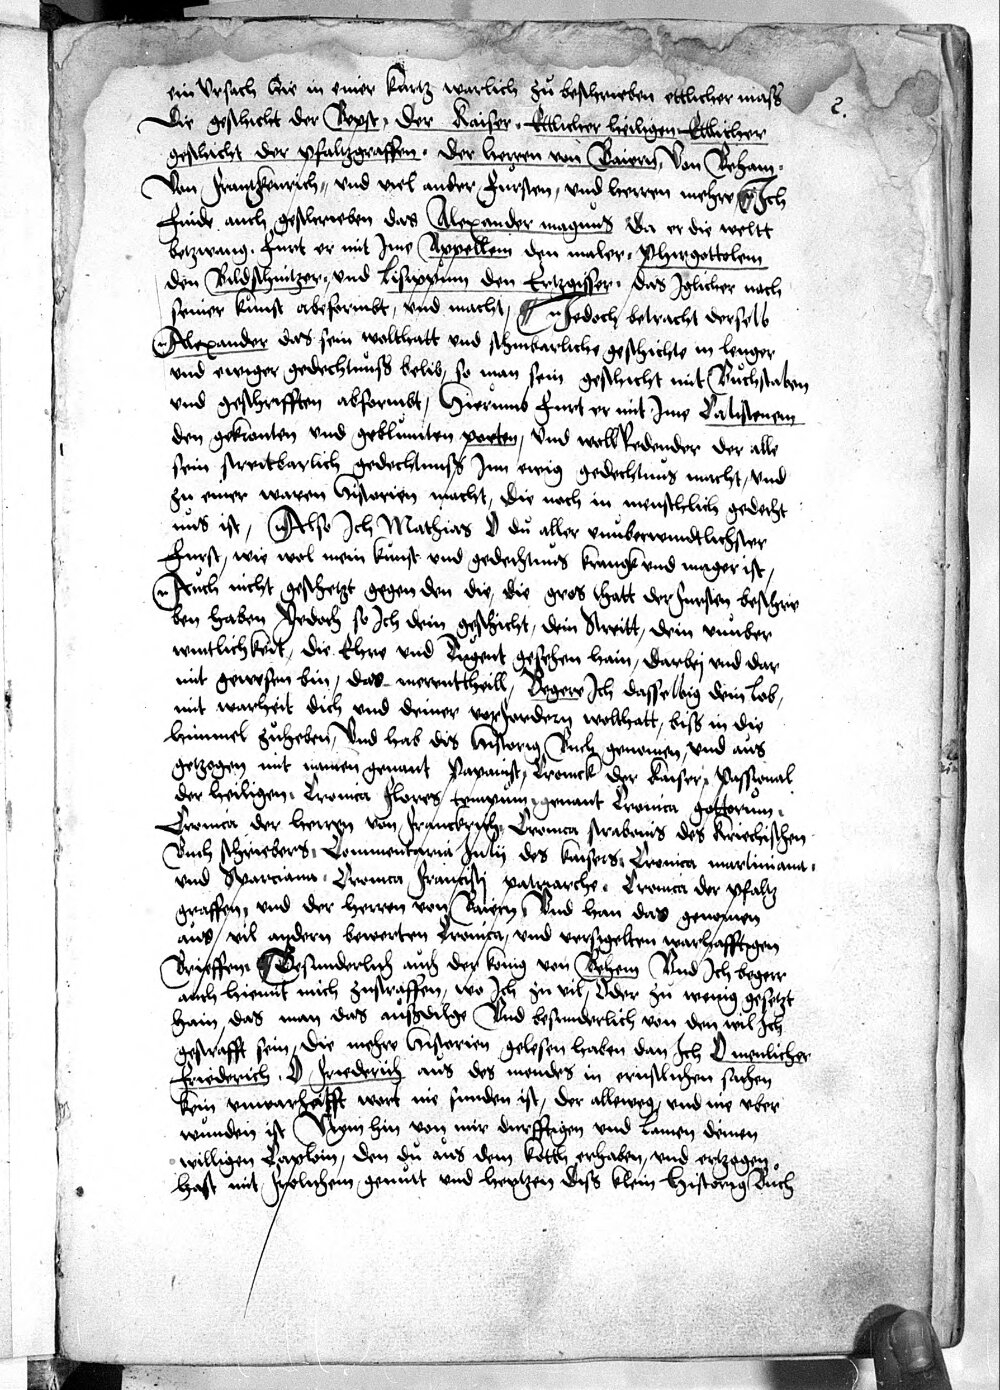 2.
ein Ursach hie in einer kurtz warlich zu beschrieben ettlicher mass
Die geschicht der Bepst, Der Kaiser, Ettlicher heiligen Ettlicher
geschicht der pfaltzgraffen, Der herren von Baiern, Von Beham,
Von Franckenrich, und viel ander Fursten, und herren mehre Ich
finde auch geschrieben das Alexander magnus Da er die weltt
betzwang, furt er mit Ime Appellem den maler, Phirgottolem
den Bildschnitzer, und Lisippum den Ertzgisser, das Iglicher nach
seiner kunst abeformbt, und macht, Jedoch betracht derselb
Alexander das sein wolthatt und scheinbarliche geschichte in lenger
und ewiger gedechtnuss belib, so man sein geschicht mit Buchstaben
und geschrifften abformbt, Hierumb furt er mit Ime Calistenem
den gekronten und geblumten poeten, Und woll Redender der alle
sein streitbarlich gedechtnuss Inn ewig gedechtnus macht, und
zu einer waren Historien macht, die noch in menschlich gedecht
nus ist, Also Ich Mathias O du aller unuberwindtlichster
Furst, wie wol mein kunst und gedechtnus kranck und mager ist,
Auch nicht geschetzt gegen den die, die gros thatt der fursten beschrie
ben haben Jedoch so Ich dein geschicht, dein Streitt, dein unuber
wintlichkeit, die Ehre und Tugent gesehen hain, darbej und dar
mit gewesen bin, das merentheill, Begere Ich dasselbig dein lob,
mit warheit dich und deiner vorfordern wolthatt, biss in die
himmel zuheben, Und hab dis Historig Buch genomen, und aus
getzogen mit namen genant Papanist, Cronick der Kaiser, Passional
der heiligen, Cronica Flores tempum, genant Cronica gottorum,
Cronica der herren von Franckrich, Cronica strabonis des Kriechischen
Buch schriebers, Commentaria Julij des kaisers, Cronica martiniana,
und Cronica Francisci patriarche, Cronica der pfaltz
graffen, und der herren von Baiern, Und han das genomen
aus, vil andern bewerten Cronica, und versigelten warhafftigen
Brieffen, Besunderlich auch der konig von Behem Und Ich begere
auch hiemit mich zustraffen, wo Ich zu vil, Oder zu wenig gesetzt
hain, das man das aussdilge Und besunderlich von den wil Ich
gestrafft sein, die mehre Historien gelesen haben dan Ich O menlicher
Friederich, O Friederich aus des mundes in ernstlichen sachen
kein unwarhafft wort nie funden ist, der alleweg, und nie uber
wunden ist Nym hin von mir durfftigen und lamen deinen
willigen Caplain, den du aus dem koth erhaben, und ertzogen
hast mit frolichem gemutt und hertzen diss klein Historig Buch